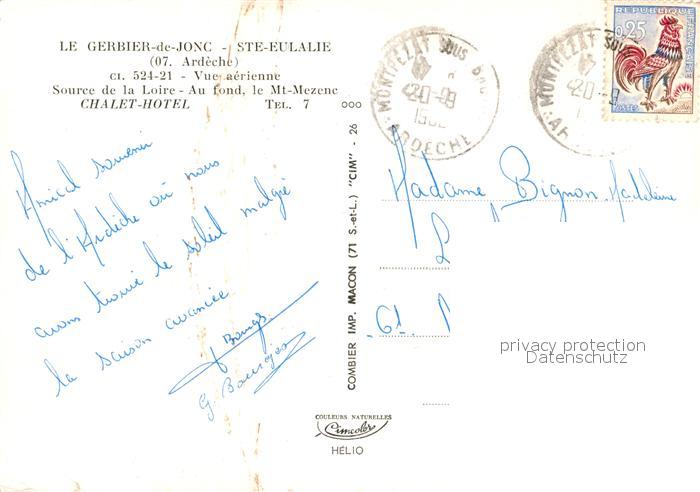 LE GERBIER-de-JONC - STE-EULALIE
(07. Ardèche)
CI. 524-21 - Vue aérienne
Source de la Loire - Au fond, le Mt-Mezenc
CHALET-HOTEL TEL. 7
Amical souvenir
de l'Ardèche où nous
avons trouvé le soleil malgré
la saison avancée
COMBIER IMP. MACON (71 S.-et-L.) "CIM" - 26
COULEURS NATURELLES
Cimcolor
HÉLIO
MONTPEZAT SOUS
20-9
ARDECHE
MONTPEZAT SOUS
20-9
REPUBLIQUE FRANÇAISE
0,25
Madame Bignon Madeleine
61
privacy protection
Datenschutz